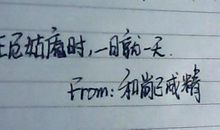 时,一日就一天.
From:和尚已成精